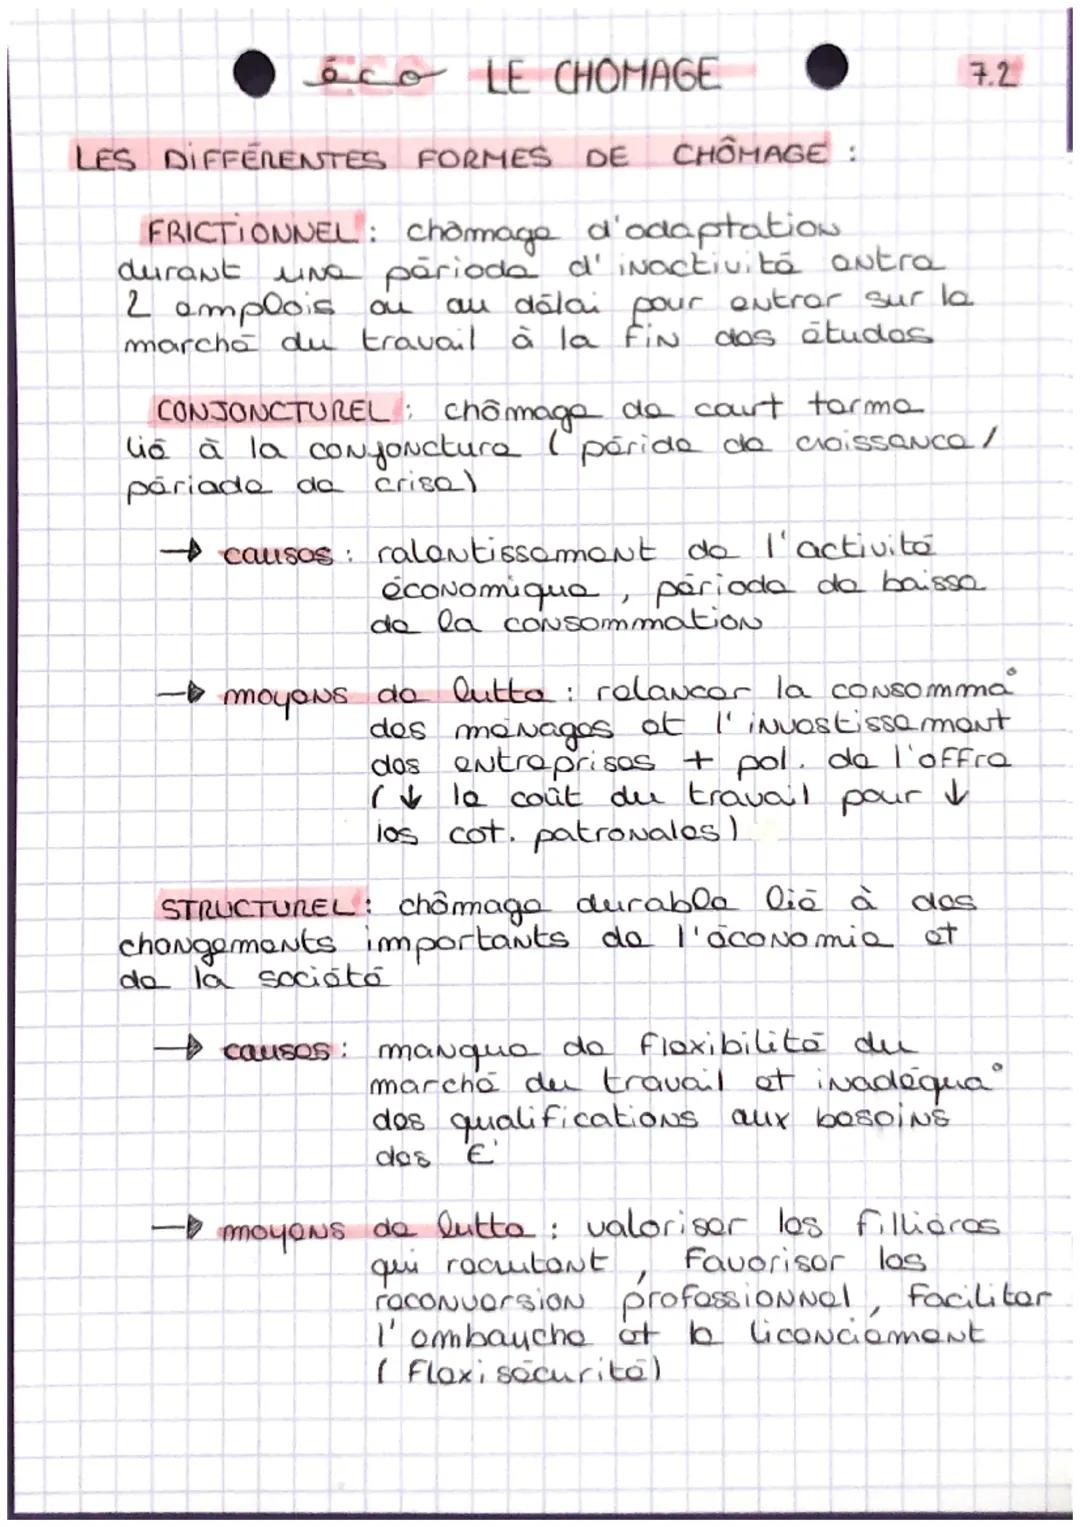 éco LE CHOMAGE 7.2
LES DIFFÉRENTES FORMES DE CHÔMAGE :
FRICTIONNEL : chômage d'adaptation
durant une période d'inactivité entre
2 emplois ou au délai pour entrer sur le
marché du travail à la fin des études
CONJONCTUREL : chômage de court terme
lié à la conjoncture ( péride de croissance /
période de crise )
→ causes : ralentissement de l'activité
économique , période de baisse
de la consommation
→ moyens de lutte : relancer la consomma°
des ménages et l'investissement
des entreprises + pol. de l'offre
( ↓ le coût du travail pour ↓
les cot. patronales )
STRUCTUREL : chômage durable lié à des
changements importants de l'économie et
de la société
→ causes : manque de flexibilité du
marché du travail et inadéqua°
des qualifications aux besoins
des E'
→ moyens de lutte : valoriser les fillières
qui recrutent , favoriser les
reconversion professionnel , faciliter
l'embauche et le licenciement
( flexisécurité )